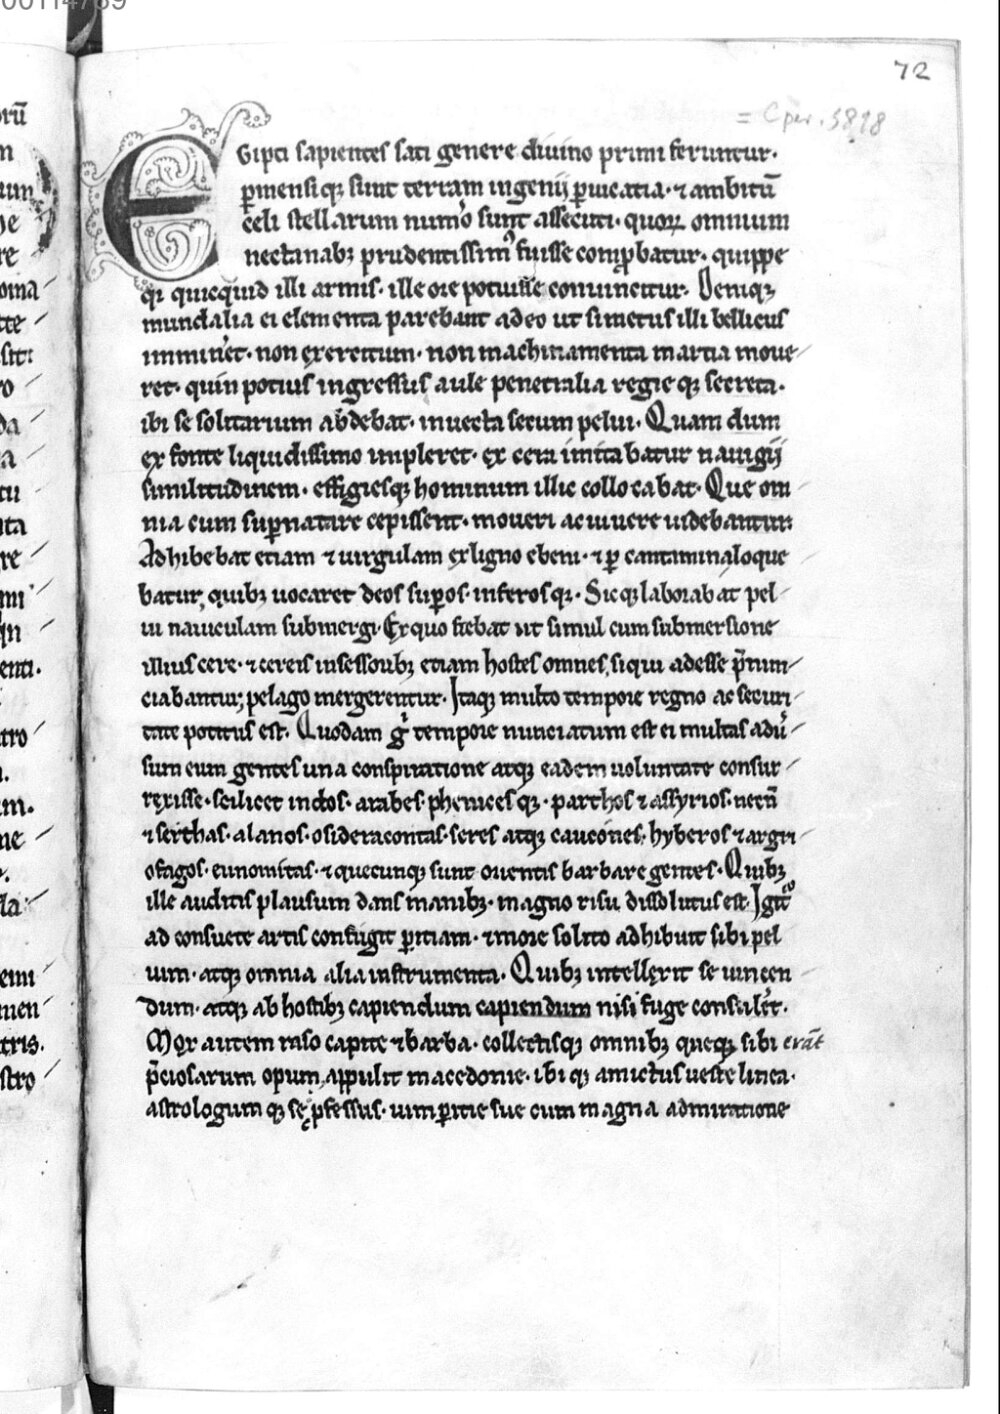 72
= Cpar. 5818
EGipti sapientes sati genere diuino primi feruntur.
p̲mensiq; sunt terram ingenii p̲uicatia. ⁊ ambitū
celi stellarum num̄o sunt assecuti. quoꝝ omnium
nectanabꝫ prudentissim᷒ fuisse comp̲batur. quippe
qi quicquid illi armis. ille ore potuisse conuincitur. Deniqꝫ
mundalia ei elementa parebant adeo ut si metus illi bellicus
immin̄et. non exercitum. non machinamenta martia moue
ret. quin potius ingressus aule penetralia regieqꝫ secreta.
ibi se solitarium abdebat. inuecta secum pelui. Quam dum
ex fonte liquidissimo impleret. ex cera imitabatur nauigii
similitudinem. effigiesqꝫ hominum illic collocabat. Que om
nia cum sup̲natare cepissent. moueri ac uiuere uidebantur.
Adhibebat etiam ⁊ uirgulam ex ligno ebeni. ⁊ p̲cantamina loque
batur, quibꝫ uocaret deos sup̲os inferosqꝫ. Sicqꝫ laborabat pel
ui nauiculam submergi. Ex quo fiebat ut simul cum submersione
illius cere. ⁊ cereis insessoribꝫ etiam hostes omnes, siqui adesse p̄nun
ciabantur, pelago mergerentur. Itaqꝫ multo tempore regno ac securi
tate potitus est. Quodam gͥ tempore nunciatum est ei multas adū
sum eum gentes una conspiratione atqꝫ eadem uoluntate consur
rexisse. scilicet indos. arabes. phenicesqꝫ. parthos ⁊ assyrios. necn̄
⁊ scithas. alanos. osideracontas. seres atqꝫ caucones. hyberos ⁊ argri
ofagos. eunomitas. ⁊ quecunqꝫ sunt orientis barbare gentes. Quibꝫ
ille auditis plausum dans manibꝫ. magno risu dissolutus est. Igit᷑
ad consuete artis confugit p̲itiam. ⁊ more solito adhibuit sibi pel
uim. atqꝫ omnia alia instrumenta. Quibꝫ intellexit se uincen
dum. atqꝫ ab hostibꝫ capiendum capiendum nisi fuge consul̄et.
Mox autem raso capite ⁊ barba. collectisqꝫ omnibꝫ queqꝫ sibi erāt
p̄ciosarum opum, appulit macedonie. ibiqꝫ amictus ueste linea.
astrologumqꝫ se p̲fessus. uim p̲itie sue cum magna admiratione